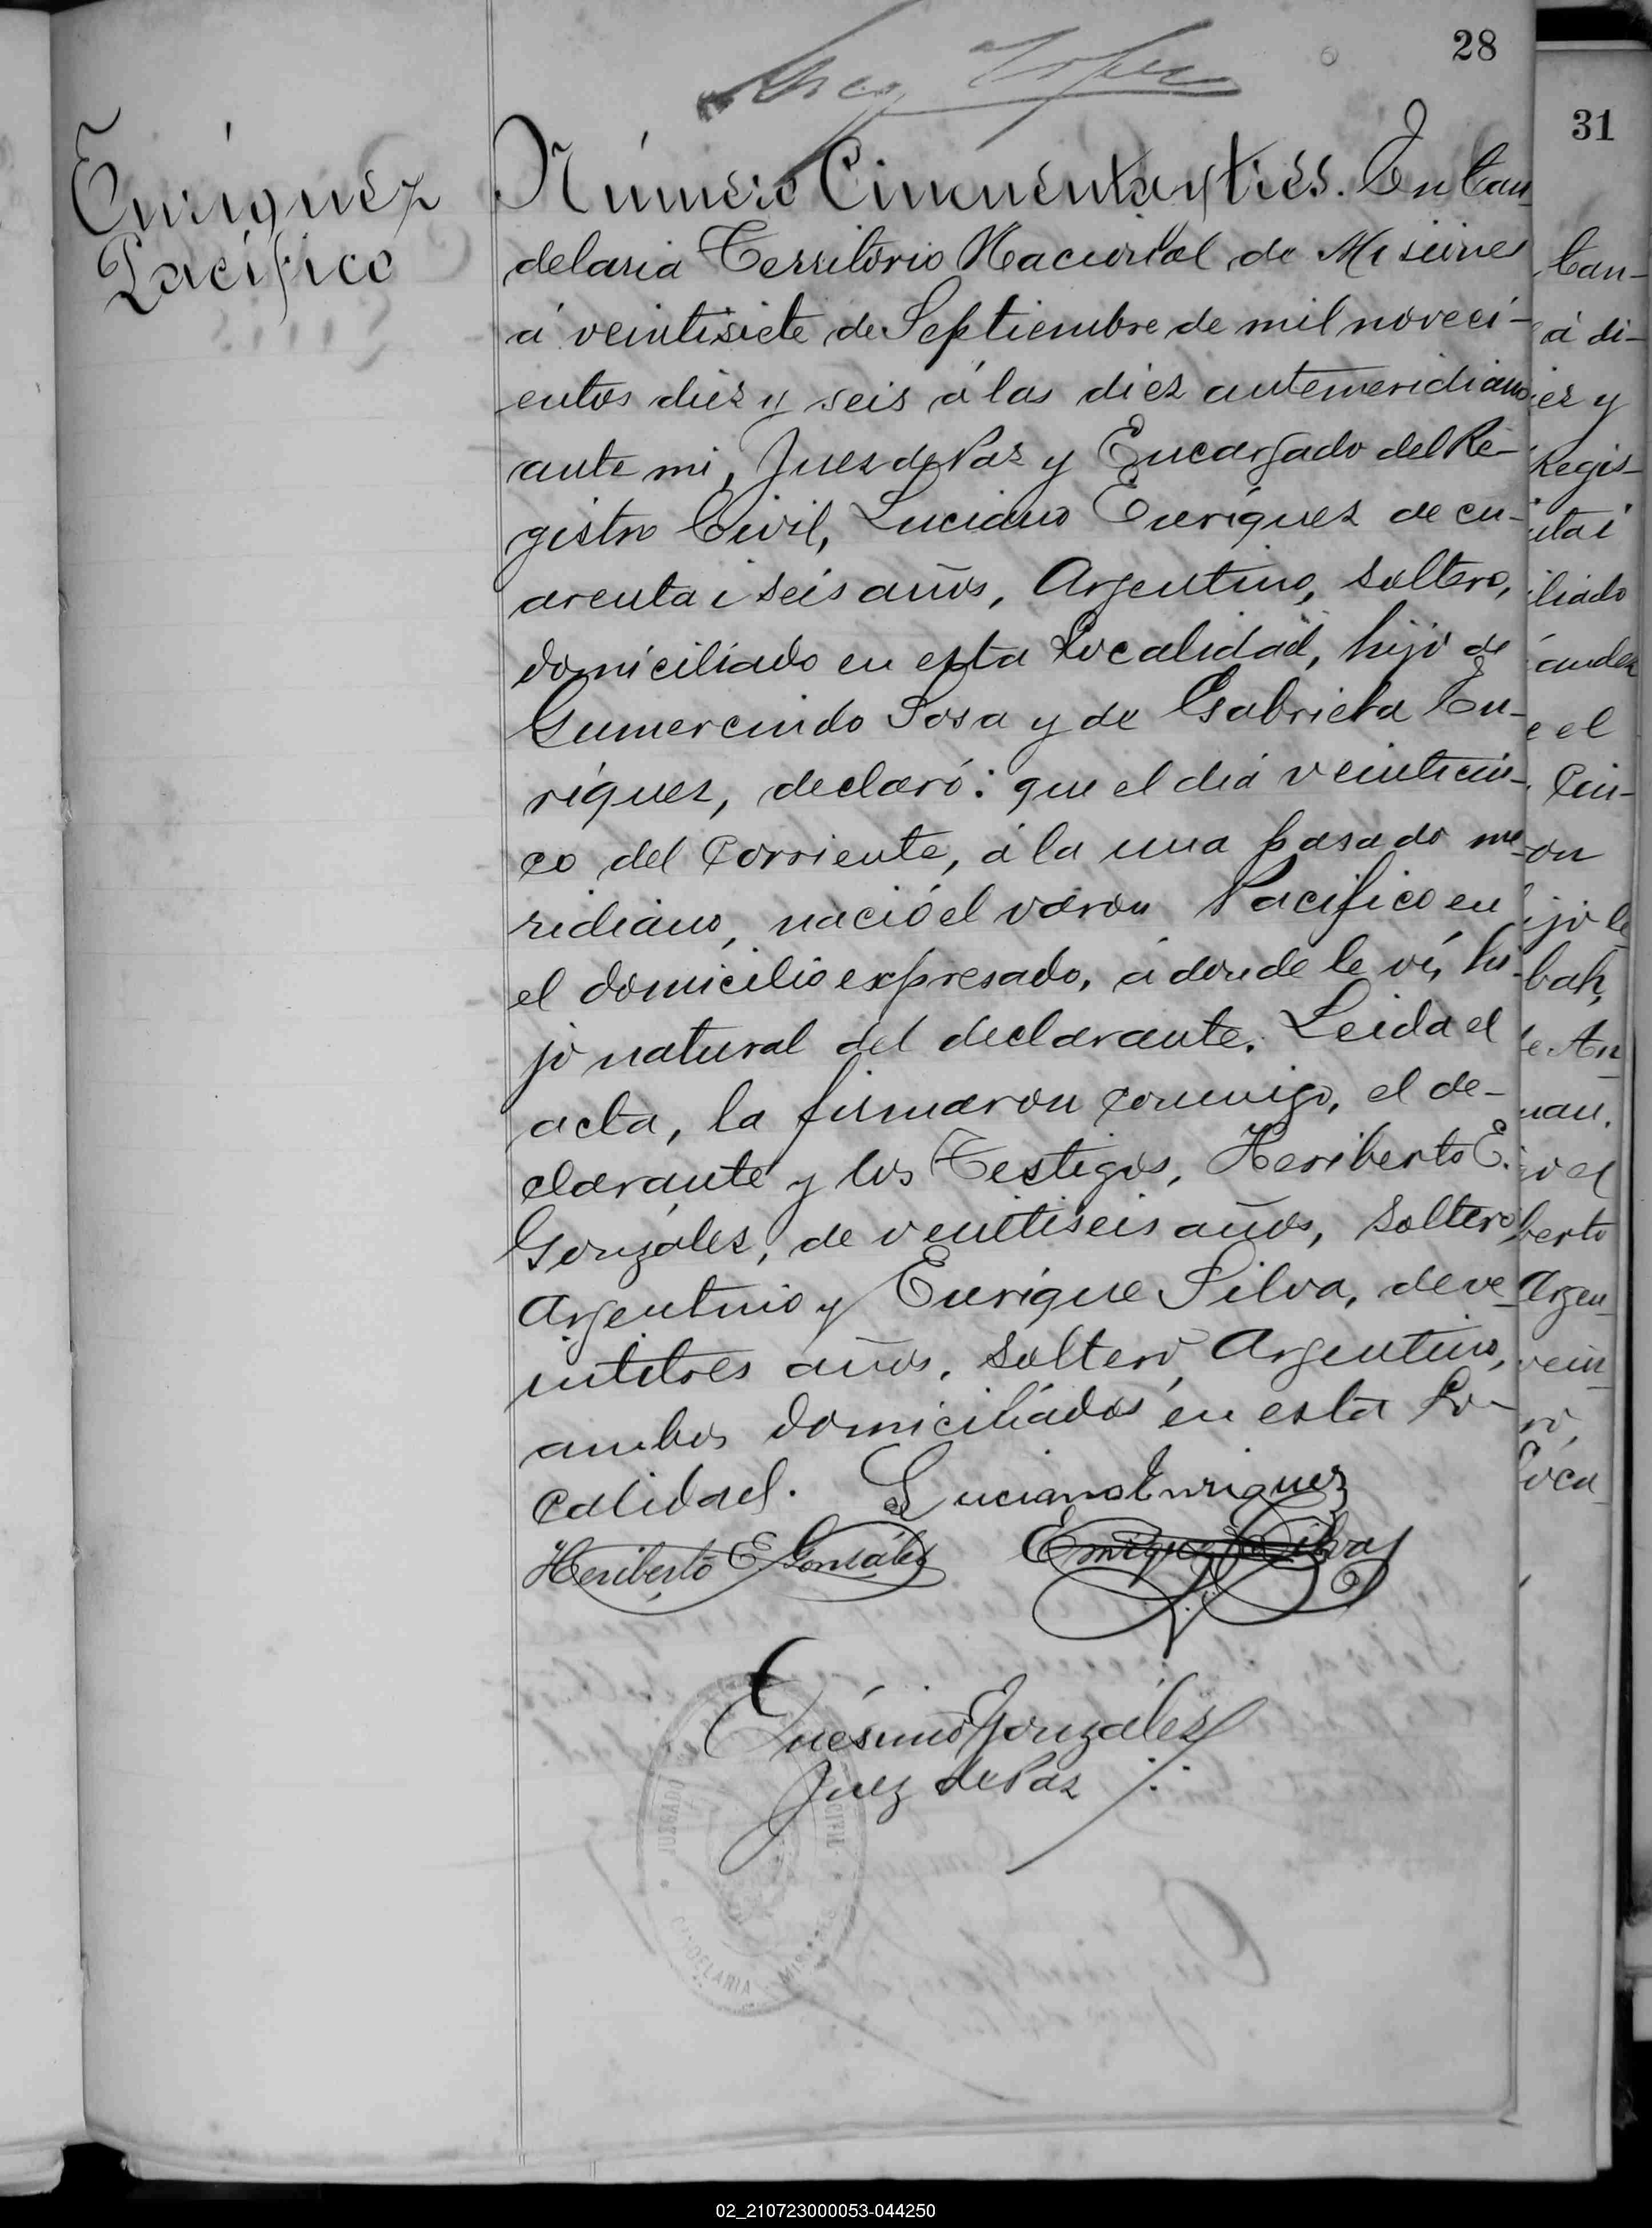 28
31
Enríquez
Pacífico
Número Cincuenta y tres. En Can
delaria Territorio Nacional de Misiones
á veintisiete de Septiembre de mil noveci-
entos diez y seis á las diez antemeridiano
ante mi, Juez de Paz y Encargado del Re-
gistro Civil, Luciano Enríquez de cu-
arenta i seis años, Argentino, soltero,
domiciliado en esta Localidad, hijo de
Gumercindo Sosa y de Gabriela En-
ríquez, declaró: que el día veinticin-
co del Corriente, á la una pasado me-
ridiano, nació el varon Pacifico en
el domicilio expresado, á donde le ví, hi-
jo natural del declarante. Leida el
acta, la firmaron conmigo, el de-
clarante y los Testigos, Heriberto E.
González, de veintiseis años, soltero,
Argentino y Enrique Silva, de ve-
intitres años, soltero, Argentino,
ambos domiciliados en esta Lo-
calidad. Luciano Enriquez
Heriberto E González Enrique Silva
Onésimo González
Juez de Paz
JUZGADO CIVIL
CANDELARIA MISIONES
Can-
á di-
iez y
Regis-
nta i
iliado
ández
e el
Cin-
on
ijo le
bah,
de An
nan.
o el
berto
Argen
vein
ro,
Loca
02_210723000053-044250